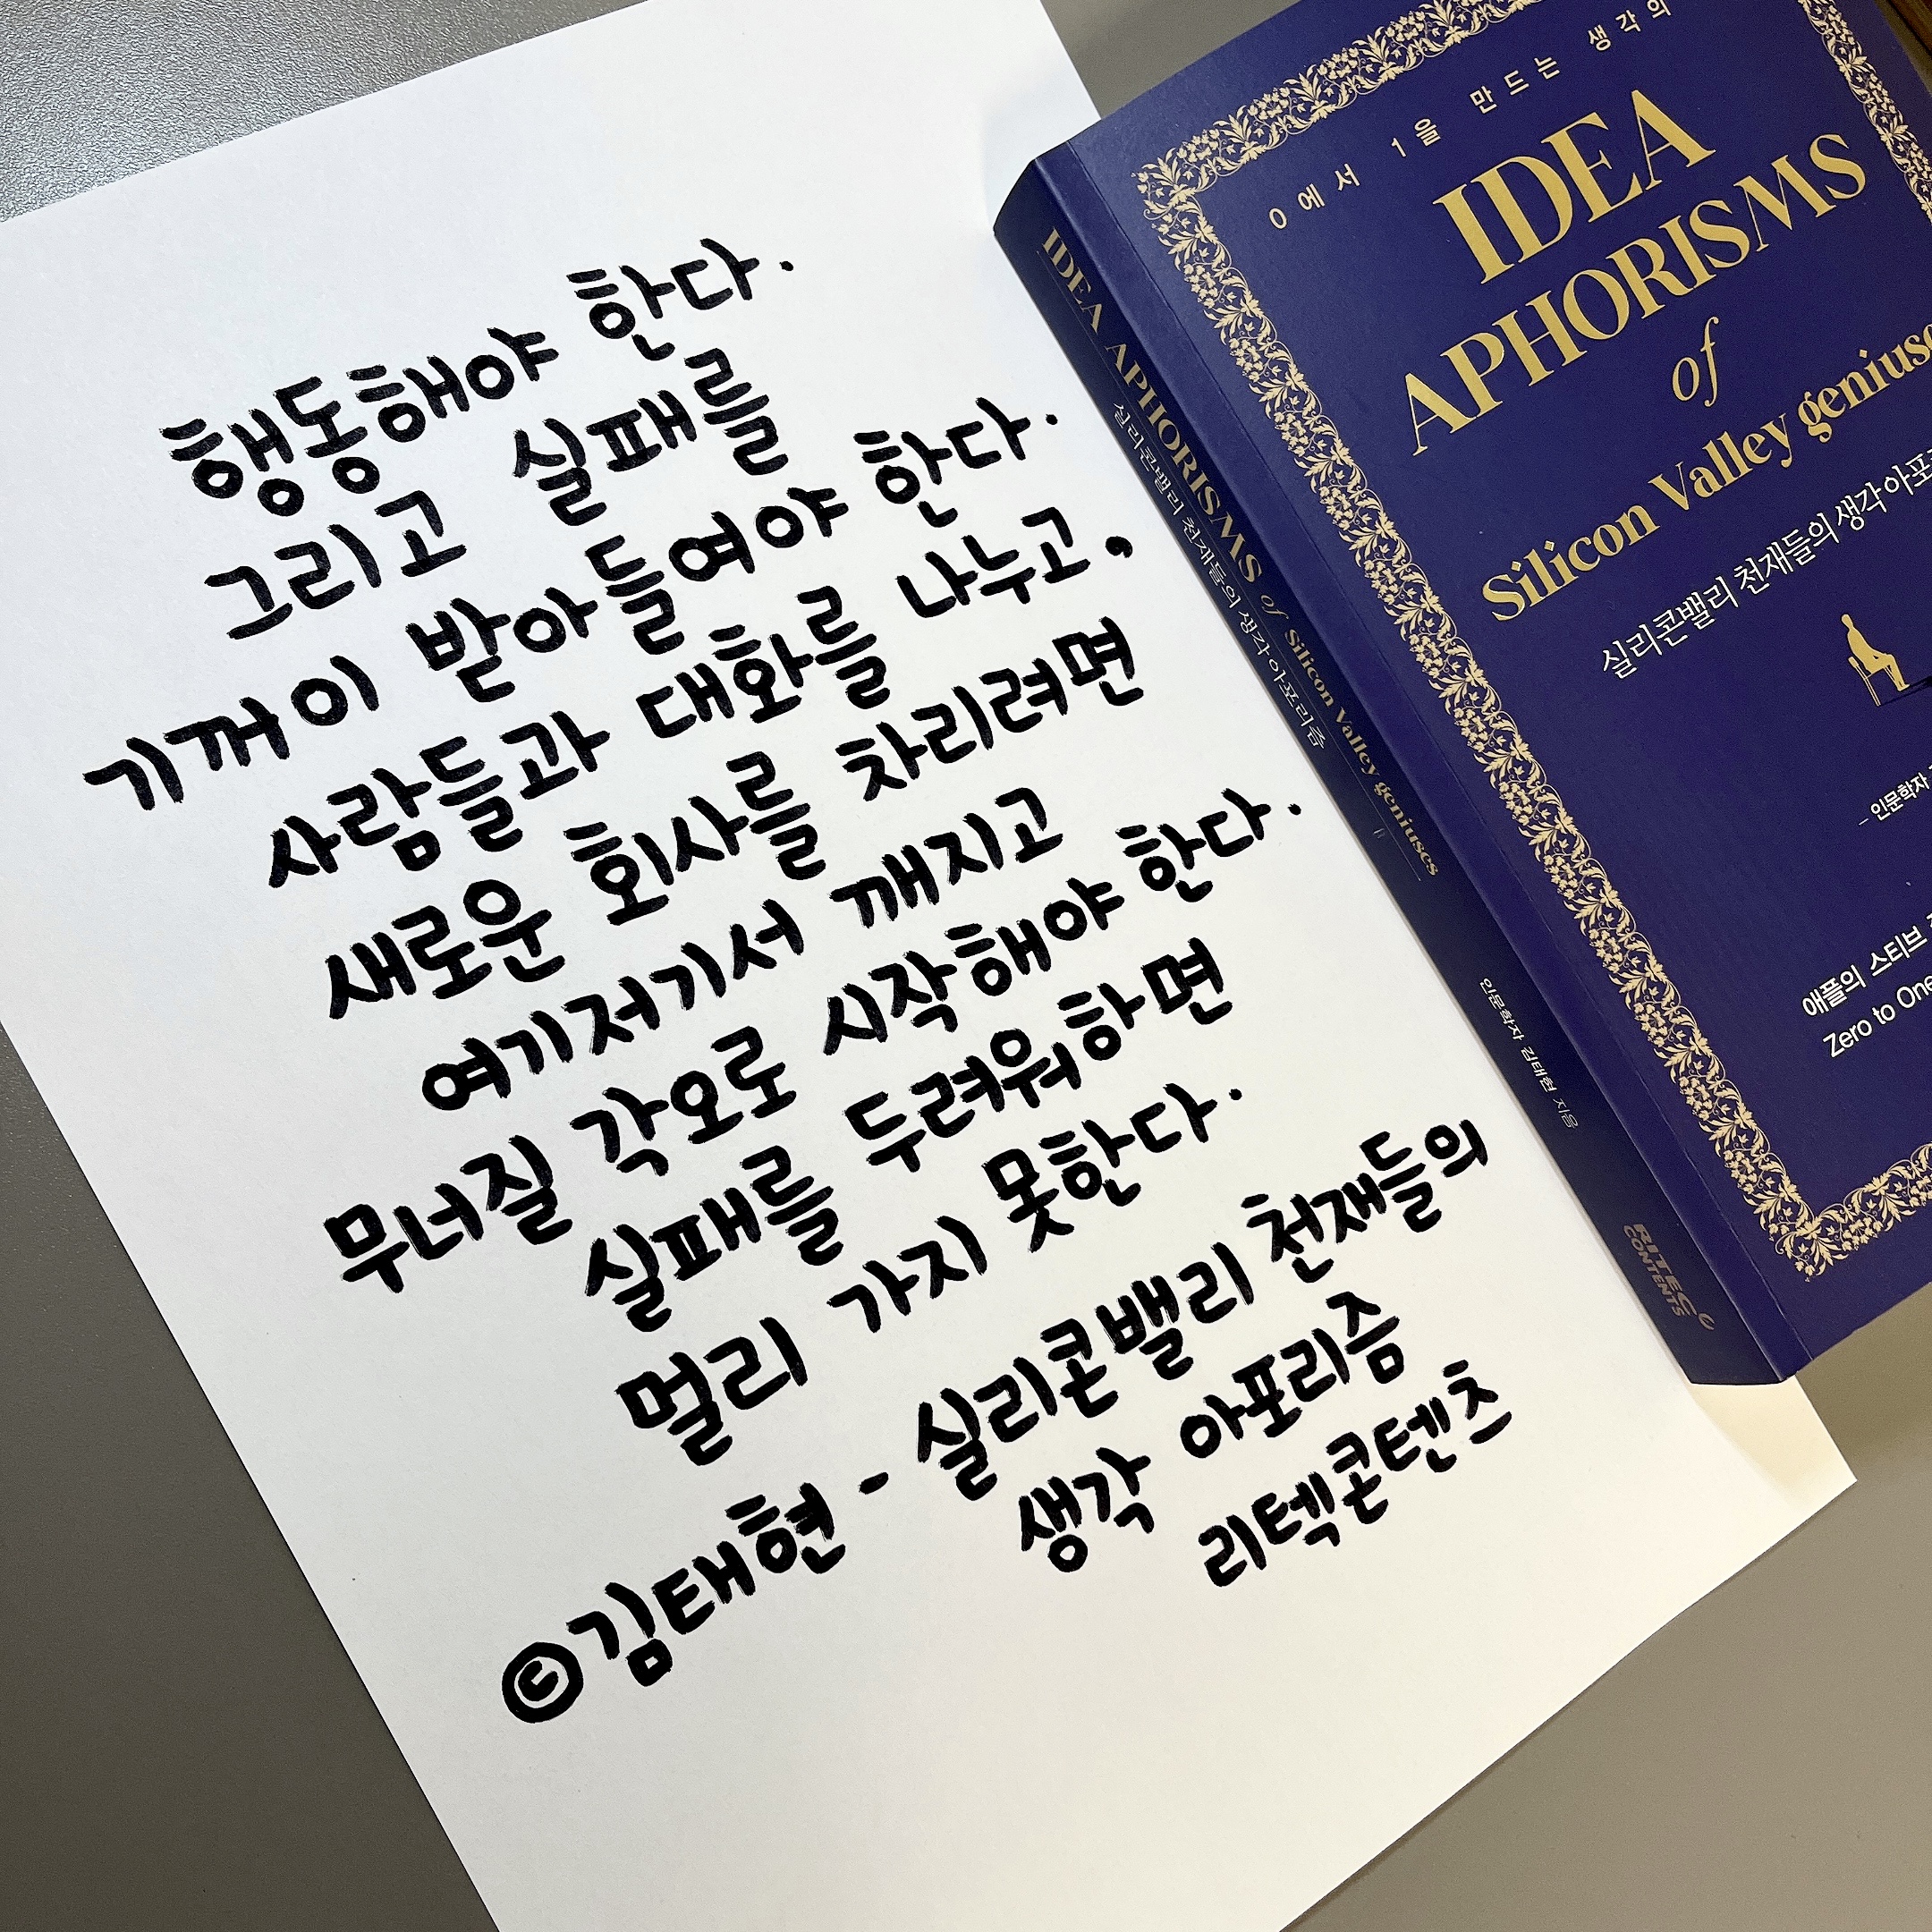 행동해야 한다.
그리고 실패를
기꺼이 받아들여야 한다.
사람들과 대화를 나누고,
새로운 회사를 차리려면
여기저기서 깨지고
무너질 각오로 시작해야 한다.
실패를 두려워하면
멀리 가지 못한다.
©김태현 - 실리콘밸리 천재들의
생각 아포리즘
리텍콘텐츠
0에서 1을 만드는 생각의
IDEA
APHORISMS
of
Silicon Valley genius
실리콘밸리 천재들의 생각 아포
- 인문학자
애플의 스티브
Zero to One
IDEA APHORISMS of Silicon Valley geniuses
실리콘밸리 천재들의 생각 아포리즘
인문학자 김태현 지음
RITEC
CONTENTS